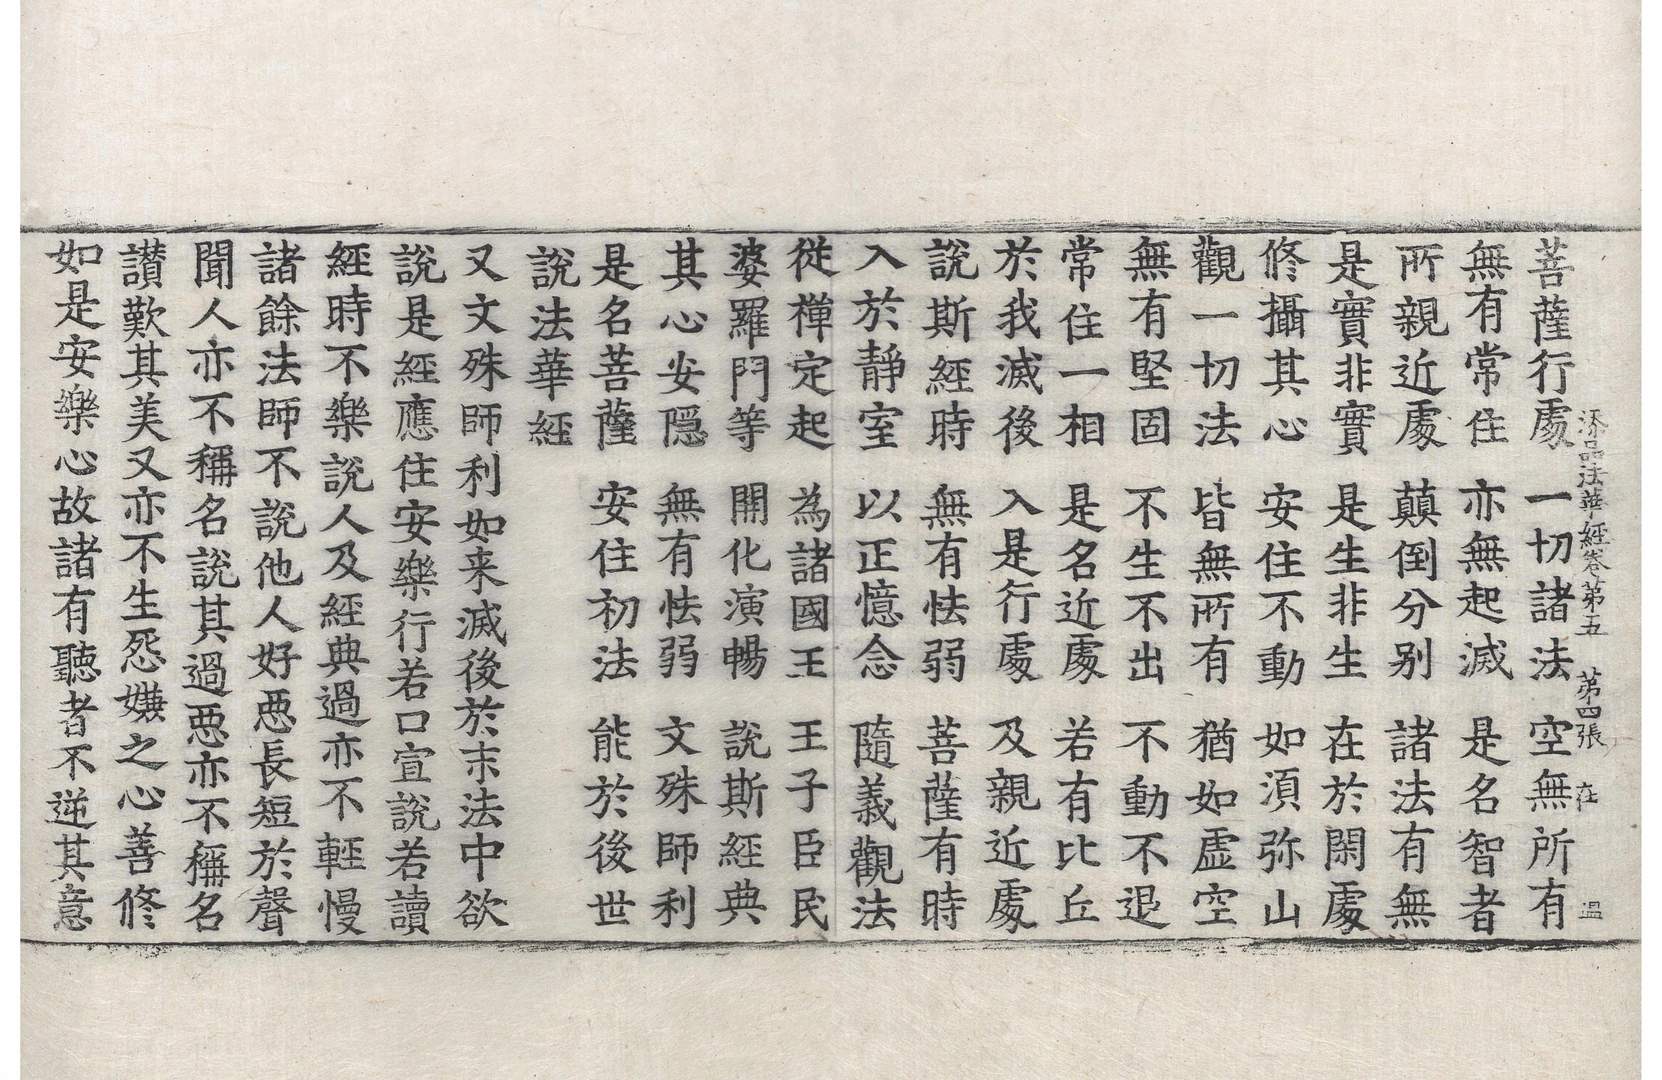 添品法華經卷第五 第四張 在 温
菩薩行處 一切諸法 空無所有
無有常住 亦無起滅 是名智者
所親近處 顛倒分別 諸法有無
是實非實 是生非生 在於閑處
修攝其心 安住不動 如須弥山
觀一切法 皆無所有 猶如虛空
無有堅固 不生不出 不動不退
常住一相 是名近處 若有比丘
於我滅後 入是行處 及親近處
說斯經時 無有怯弱 菩薩有時
入於靜室 以正憶念 隨義觀法
從禪定起 為諸國王 王子臣民
婆羅門等 開化演暢 說斯經典
其心安隱 無有怯弱 文殊師利
是名菩薩 安住初法 能於後世
說法華經
又文殊師利如来滅後於末法中欲
說是經應住安樂行若口宣說若讀
經時不樂說人及經典過亦不輕慢
諸餘法師不說他人好惡長短於聲
聞人亦不稱名說其過惡亦不稱名
讃歎其美又亦不生怨嫌之心善修
如是安樂心故諸有聽者不逆其意